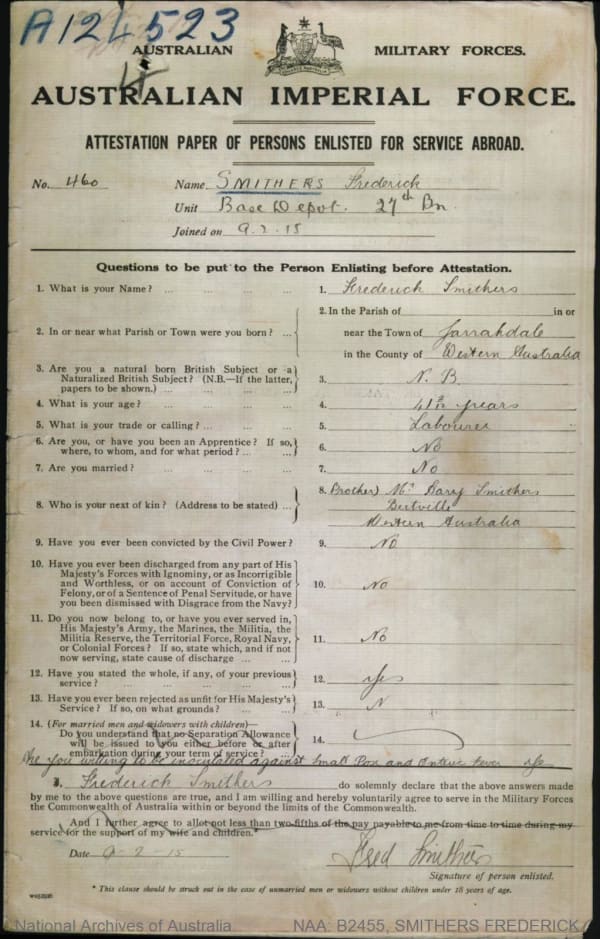 A124523
4
AUSTRALIAN MILITARY FORCES.
AUSTRALIAN IMPERIAL FORCE.
ATTESTATION PAPER OF PERSONS ENLISTED FOR SERVICE ABROAD.
No. 460 Name SMITHERS Frederick
Unit Base Depot. 27th Bn
Joined on 9.2.15
Questions to be put to the Person Enlisting before Attestation.
1. What is your Name? ... ... ... ... 1. Frederick Smithers
2. In or near what Parish or Town were you born? ... 2. In the Parish of in or
near the Town of Jarrahdale
in the County of Western Australia
3. Are you a natural born British Subject or a
Naturalized British Subject? (N.B.—If the latter,
papers to be shown.) ... ... ... ... 3. N. B
4. What is your age? ... ... ... ... 4. years
5. What is your trade or calling? ... ... ... 5. Labourer
6. Are you, or have you been an Apprentice? If so,
where, to whom, and for what period? ... ... 6. No
7. Are you married? ... ... ... ... 7. No
8. Who is your next of kin? (Address to be stated) ... 8. Brother) Mr Smithers
Western Australia
9. Have you ever been convicted by the Civil Power? 9. No
10. Have you ever been discharged from any part of His
Majesty's Forces with Ignominy, or as Incorrigible
and Worthless, or on account of Conviction of
Felony, or of a Sentence of Penal Servitude, or have
you been dismissed with Disgrace from the Navy? 10. No
11. Do you now belong to, or have you ever served in,
His Majesty's Army, the Marines, the Militia, the
Militia Reserve, the Territorial Force, Royal Navy,
or Colonial Forces? If so, state which, and if not
now serving, state cause of discharge ... ... 11. No
12. Have you stated the whole, if any, of your previous
service? ... ... ... ... 12. Yes
13. Have you ever been rejected as unfit for His Majesty's
Service? If so, on what grounds? ... ... 13. N
14. (For married men and widowers with children)—
Do you understand that no Separation Allowance
will be issued to you either before or after
embarkation during your term of service? ... 14.
Are you willing to be inoculated against Small Pox and Enteric Fever Yes
I, Frederick Smithers do solemnly declare that the above answers made
by me to the above questions are true, and I am willing and hereby voluntarily agree to serve in the Military Forces
of the Commonwealth of Australia within or beyond the limits of the Commonwealth.
And I further agree to allot not less than two-fifths of the pay payable to me from time to time during my
service for the support of my wife and children.*
Date 9-2-15
Fred Smithers
Signature of person enlisted.
* This clause should be struck out in the case of unmarried men or widowers without children under 18 years of age.
National Archives of Australia NAA: B2455, SMITHERS FREDERICK